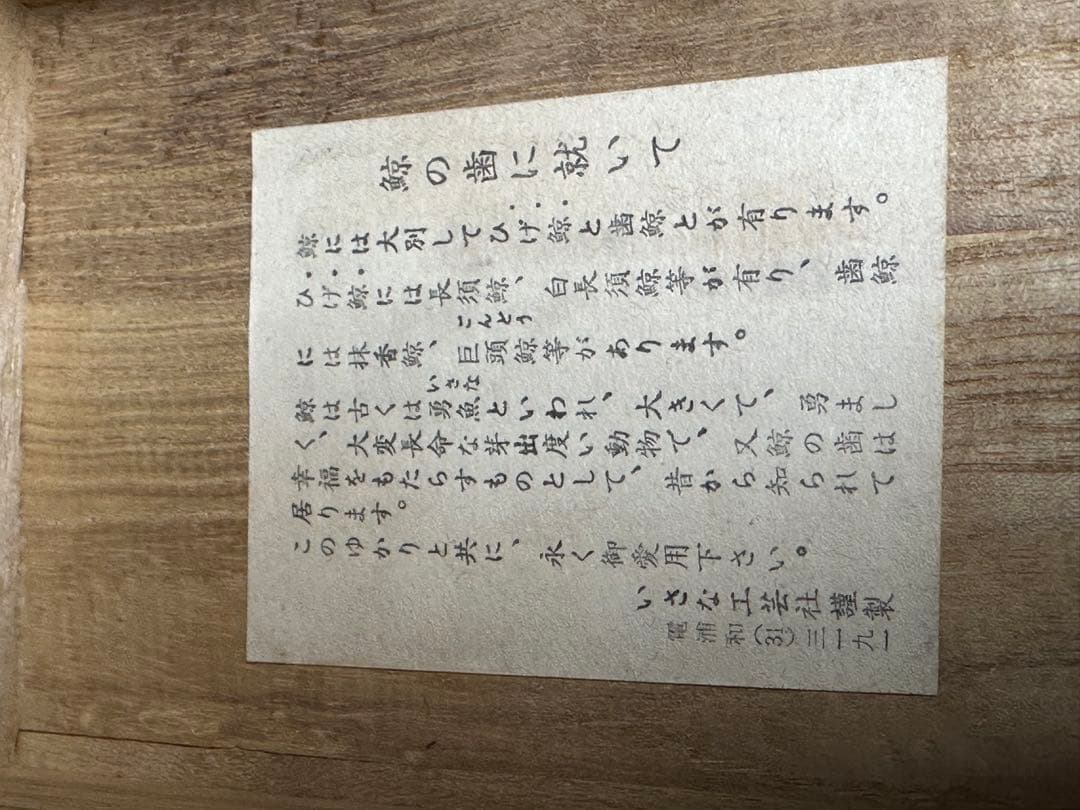 鯨の歯に就いて
鯨には大別してひげ鯨と歯鯨とが有ります。
ひげ鯨には長須鯨、白長須鯨等が有り、歯鯨
には抹香鯨、巨頭鯨等があります。
こんとう
鯨は古くは勇魚といわれ、大きくて、勇まし
いさな
く、大変長命な芽出度い動物で、又鯨の歯は
幸福をもたらすものとして、昔から知られて
居ります。
このゆかりと共に、永く御愛用下さい。
いさな工芸社謹製
電浦和(31)三一九一